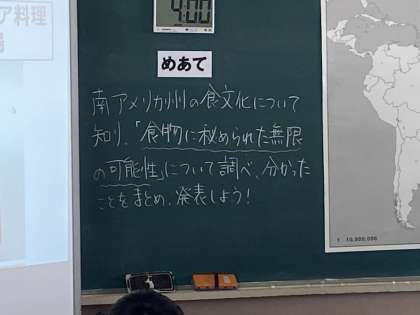 ア料理
4:00
めあて
南アメリカ州の食文化について
知り、「食物に秘められた無限
の可能性」について調べ、分かった
ことをまとめ、発表しよう!